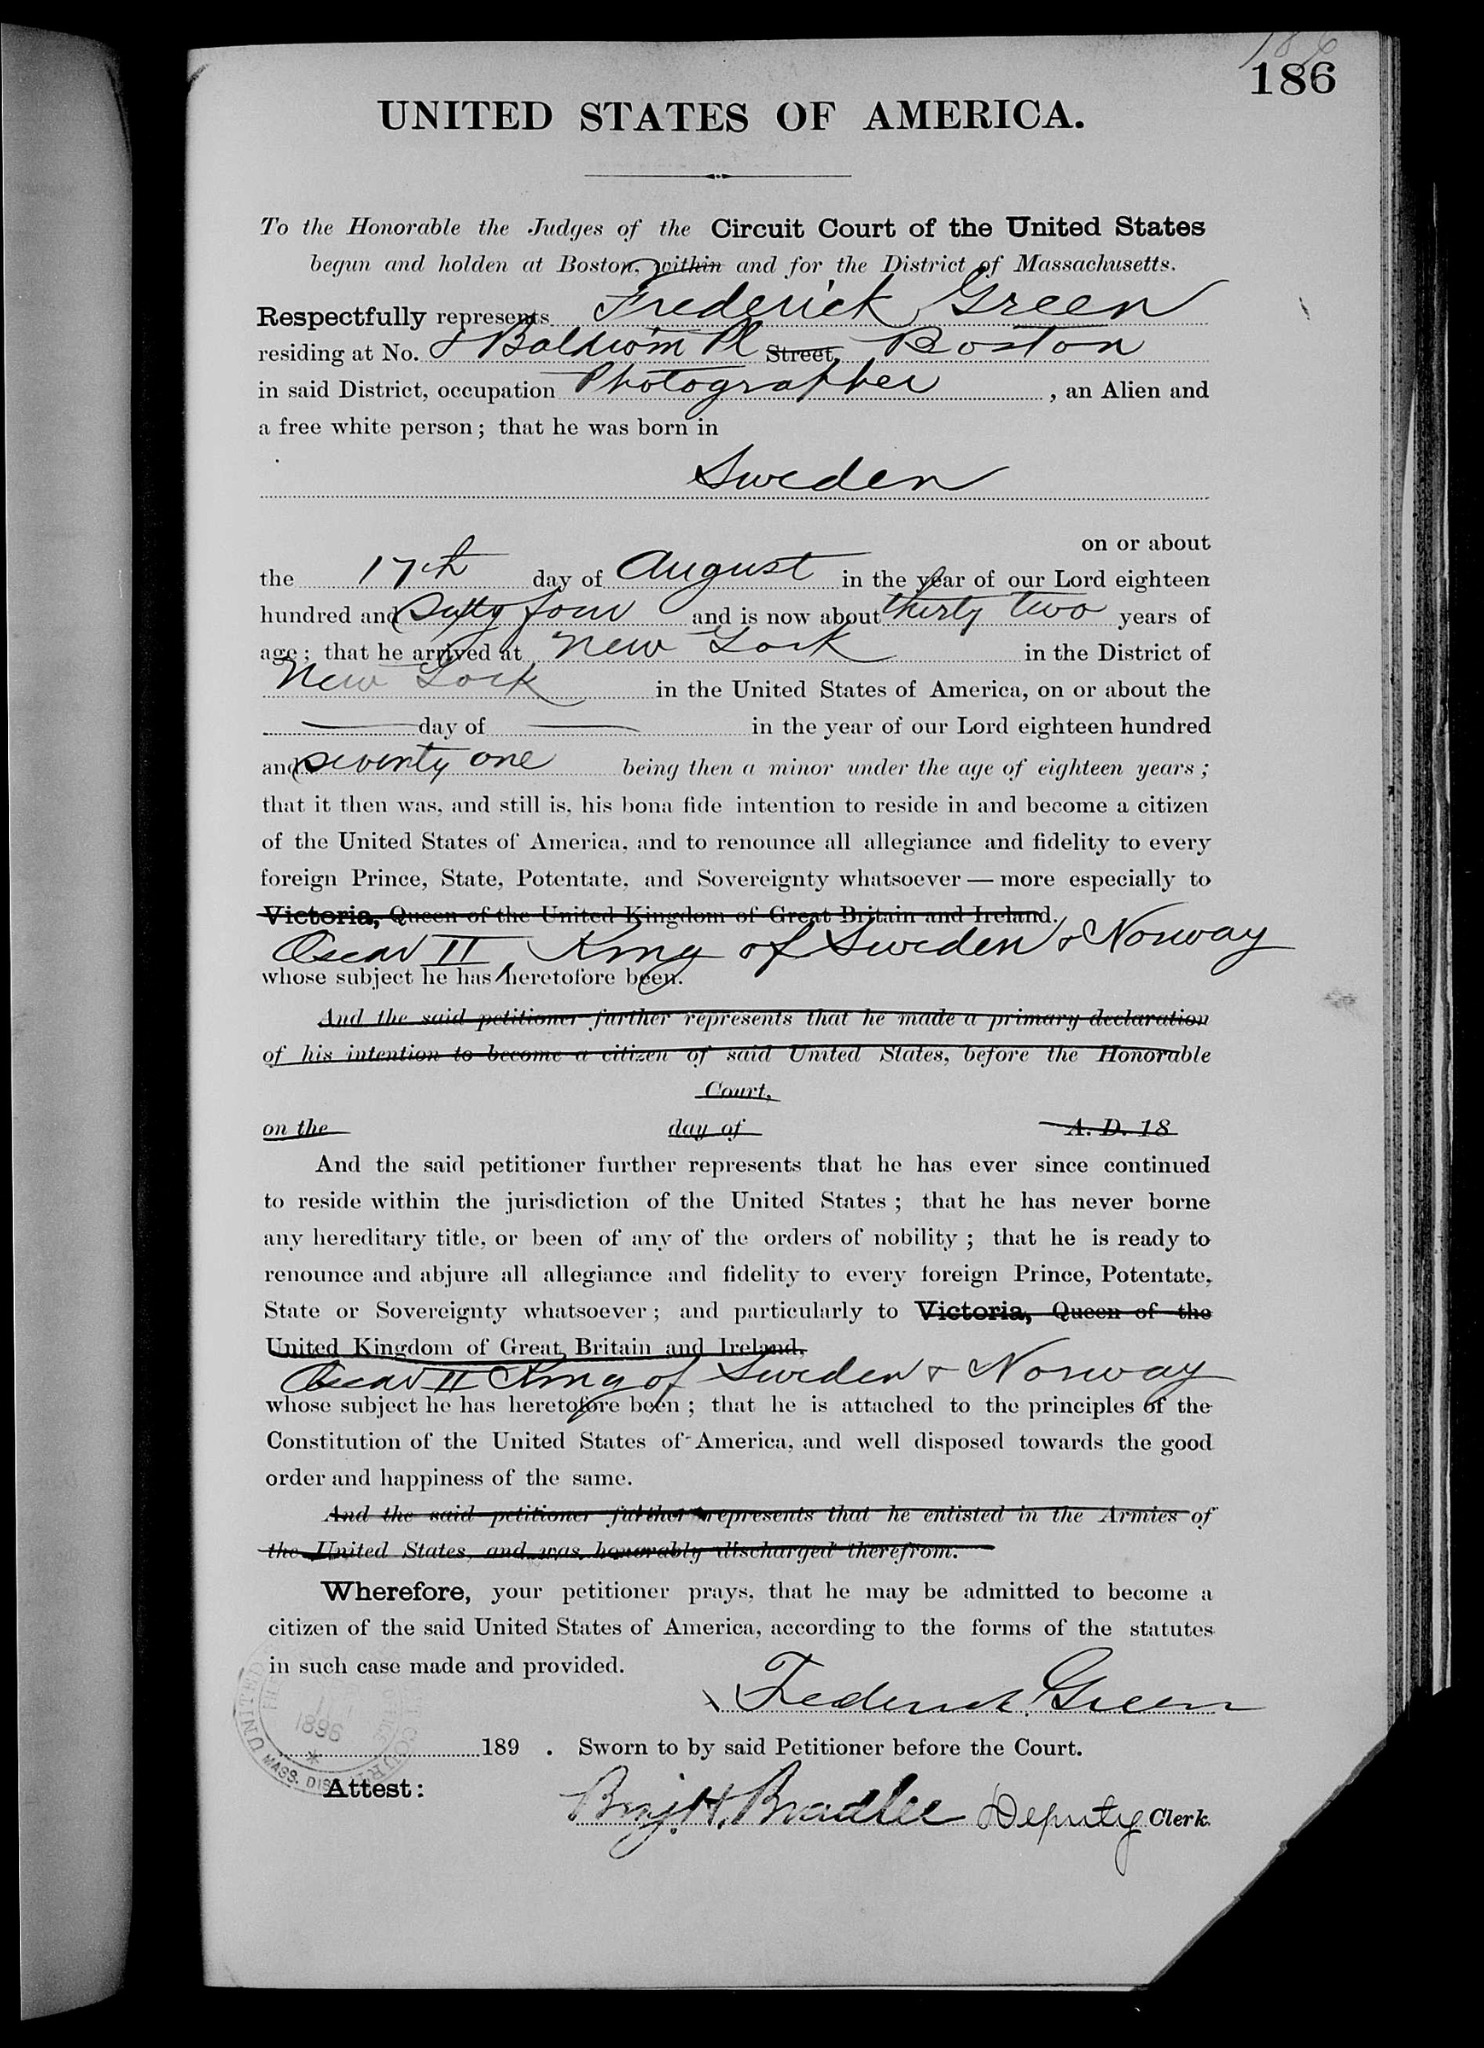 186
186
UNITED STATES OF AMERICA.
To the Honorable the Judges of the Circuit Court of the United States
begun and holden at Boston, within and for the District of Massachusetts.
Respectfully represents Frederick Green
residing at No. Baldwin Pl Street, Boston
in said District, occupation Photographer, an Alien and
a free white person; that he was born in
Sweden
on or about
the 17th day of August in the year of our Lord eighteen
hundred and sixty four and is now about thirty two years of
age; that he arrived at New York in the District of
New York in the United States of America, on or about the
— day of — in the year of our Lord eighteen hundred
and seventy one being then a minor under the age of eighteen years;
that it then was, and still is, his bona fide intention to reside in and become a citizen
of the United States of America, and to renounce all allegiance and fidelity to every
foreign Prince, State, Potentate, and Sovereignty whatsoever — more especially to
Victoria, Queen of the United Kingdom of Great Britain and Ireland.
Oscar II, King of Sweden & Norway
whose subject he has heretofore been.
And the said petitioner further represents that he made a primary declaration
of his intention to become a citizen of said United States, before the Honorable
Court,
on the day of A. D. 18
And the said petitioner further represents that he has ever since continued
to reside within the jurisdiction of the United States; that he has never borne
any hereditary title, or been of any of the orders of nobility; that he is ready to
renounce and abjure all allegiance and fidelity to every foreign Prince, Potentate,
State or Sovereignty whatsoever; and particularly to Victoria, Queen of the
United Kingdom of Great Britain and Ireland,
Oscar II King of Sweden & Norway
whose subject he has heretofore been; that he is attached to the principles of the
Constitution of the United States of America, and well disposed towards the good
order and happiness of the same.
And the said petitioner further represents that he enlisted in the Armies of
the United States, and was honorably discharged therefrom.
Wherefore, your petitioner prays, that he may be admitted to become a
citizen of the said United States of America, according to the forms of the statutes
in such case made and provided.
Frederick Green
UNITED
1896
MASS. DIST.
189 . Sworn to by said Petitioner before the Court.
Attest:
Benj. H. Bradlee Deputy Clerk.